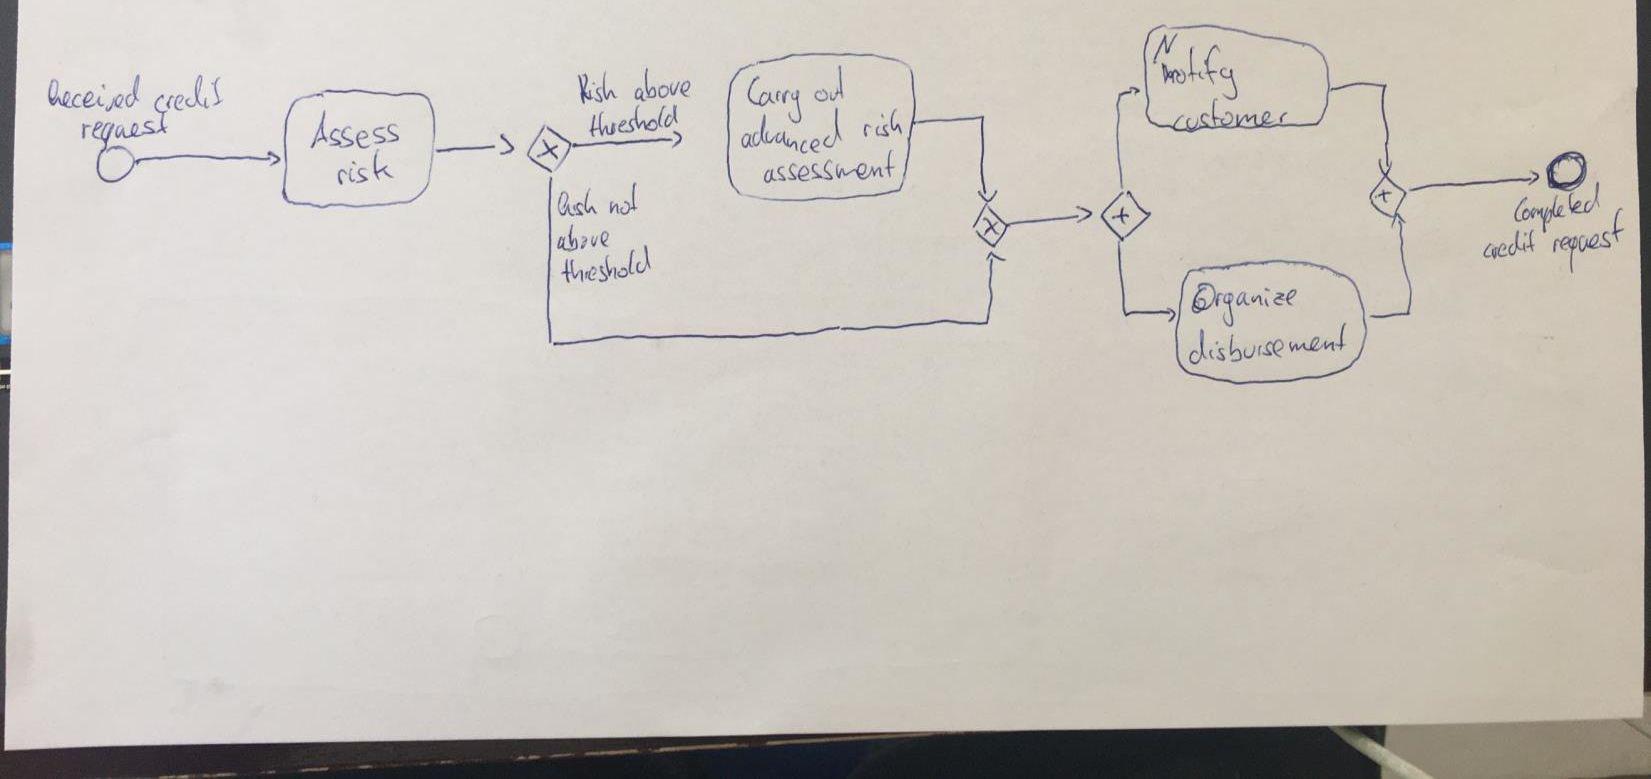 Received credit
request
Assess
risk
X
Risk above
threshold
Risk not
above
threshold
Carry out
advanced risk
assessment
X
+
Notify
customer
Organize
disbursement
+
Completed
credit request